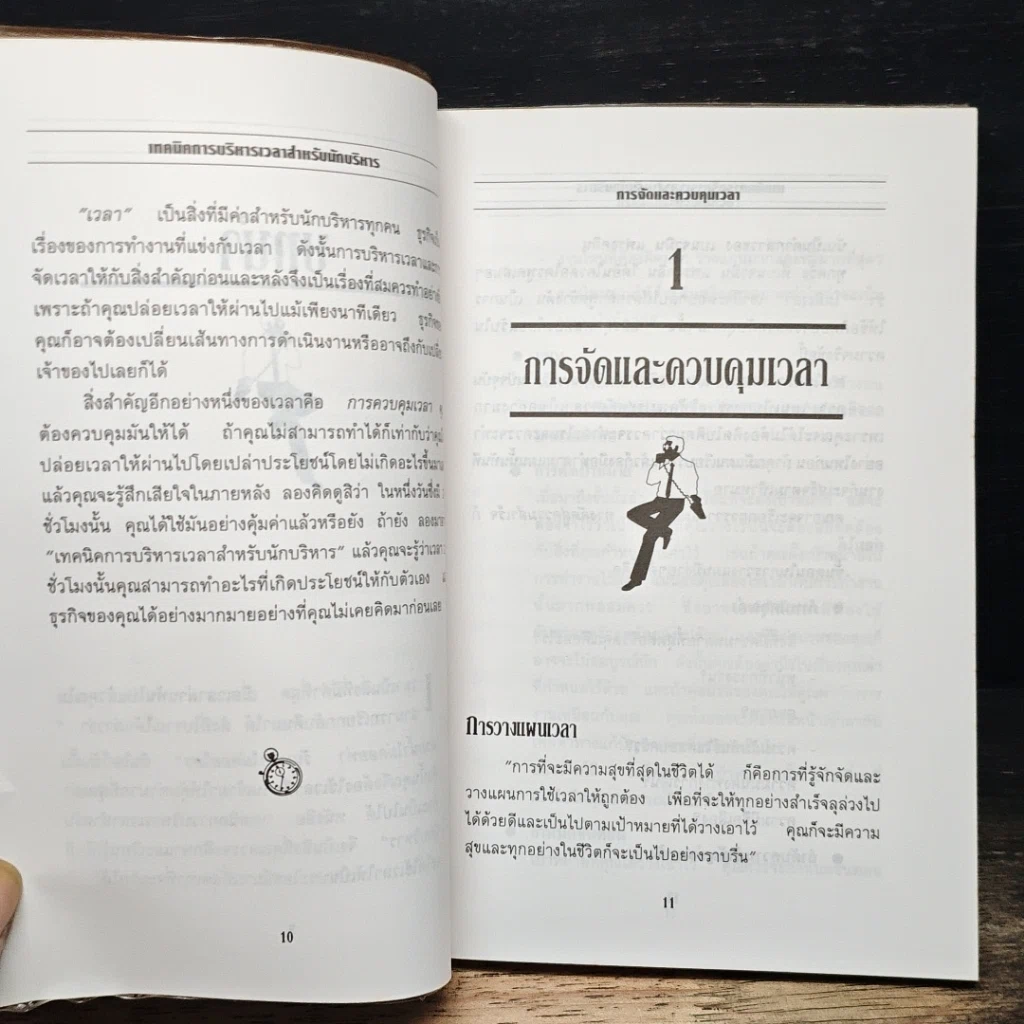 เทคนิคการบริหารเวลาสำหรับนักบริหาร
"เวลา" เป็นสิ่งที่มีค่าสำหรับนักบริหารทุกคน
เรื่องของการทำงานที่แข่งกับเวลา ดังนั้นการบริหารเวลาและ
จัดเวลาให้กับสิ่งสำคัญก่อนและหลังจึงเป็นเรื่องที่สมควรทำ
เพราะถ้าคุณปล่อยเวลาให้ผ่านไปแม้เพียงนาทีเดียว
คุณก็อาจต้องเปลี่ยนเส้นทางการดำเนินงานหรืออาจถึงกับ
เจ้าของไปเลยก็ได้
สิ่งสำคัญอีกอย่างหนึ่งของเวลาคือ การควบคุมเวลา
ต้องควบคุมมันให้ได้ ถ้าคุณไม่สามารถทำได้ก็เท่ากับว่า
ปล่อยเวลาให้ผ่านไปโดยเปล่าประโยชน์โดยไม่เกิดอะไรขึ้น
แล้วคุณจะรู้สึกเสียใจในภายหลัง ลองคิดดูสิว่า ในหนึ่งวัน
ชั่วโมงนั้น คุณได้ใช้มันอย่างคุ้มค่าแล้วหรือยัง ถ้ายัง
"เทคนิคการบริหารเวลาสำหรับนักบริหาร" แล้วคุณจะรู้ว่าเวลา
ชั่วโมงนั้นคุณสามารถทำอะไรที่เกิดประโยชน์ให้กับตัวเอง
ธุรกิจของคุณได้อย่างมากมายอย่างที่คุณไม่เคยคิดมาก่อนเลย
10
การจัดและควบคุมเวลา
1
การจัดและควบคุมเวลา
การวางแผนเวลา
"การที่จะมีความสุขที่สุดในชีวิตได้ ก็คือการที่รู้จักจัดและ
วางแผนการใช้เวลาให้ถูกต้อง เพื่อที่จะให้ทุกอย่างสำเร็จลุล่วงไป
ได้ด้วยดีและเป็นไปตามเป้าหมายที่ได้วางเอาไว้ คุณก็จะมีความ
สุขและทุกอย่างในชีวิตก็จะเป็นไปอย่างราบรื่น"
11